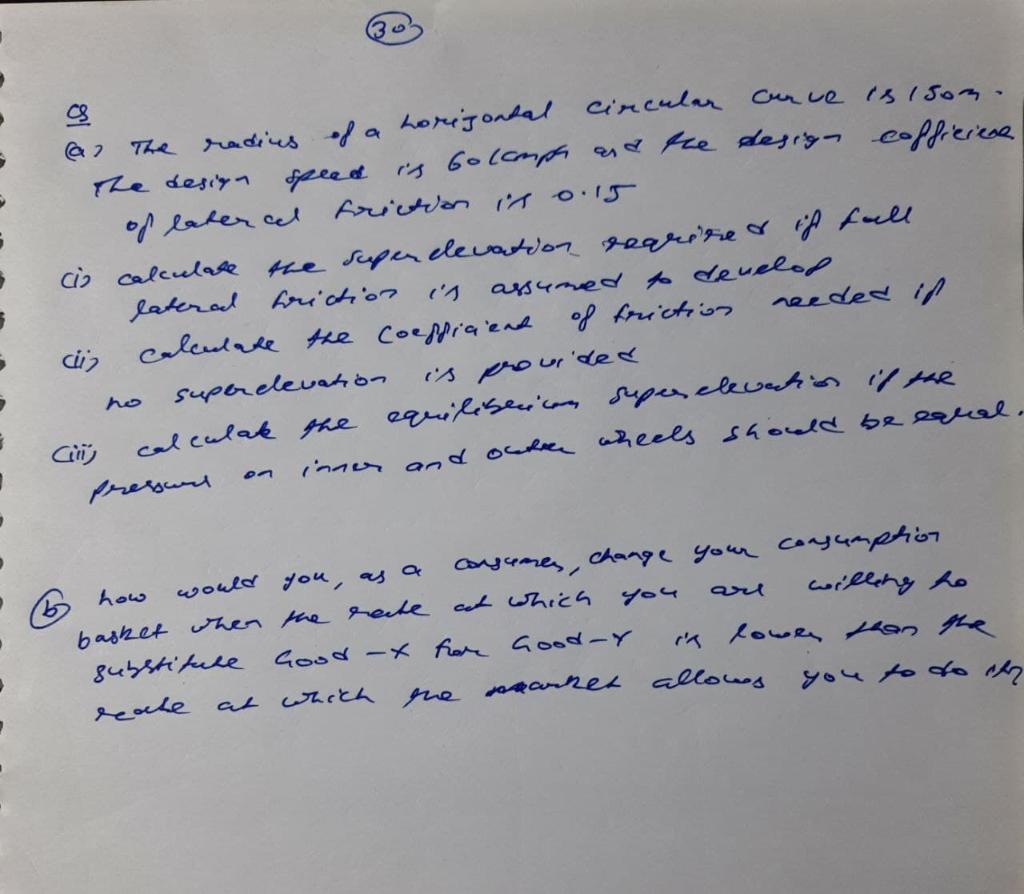 30
Q
(a) The radius of a horizontal circular curve is 150m.
The design speed is 60 kmph and the design cofficient
of lateral friction is 0.15
(i) calculate the superelevation required if full
lateral friction is assumed to develop
(ii) calculate the coefficient of friction needed if
no superelevation is provided
(iii) calculate the equilibrium superelevation if the
pressure on inner and outer wheels should be equal.
(b) how would you, as a consumer, change your consumption
basket when the rate at which you are willing to
substitute Good-X for Good-Y is lower than the
rate at which the market allows you to do